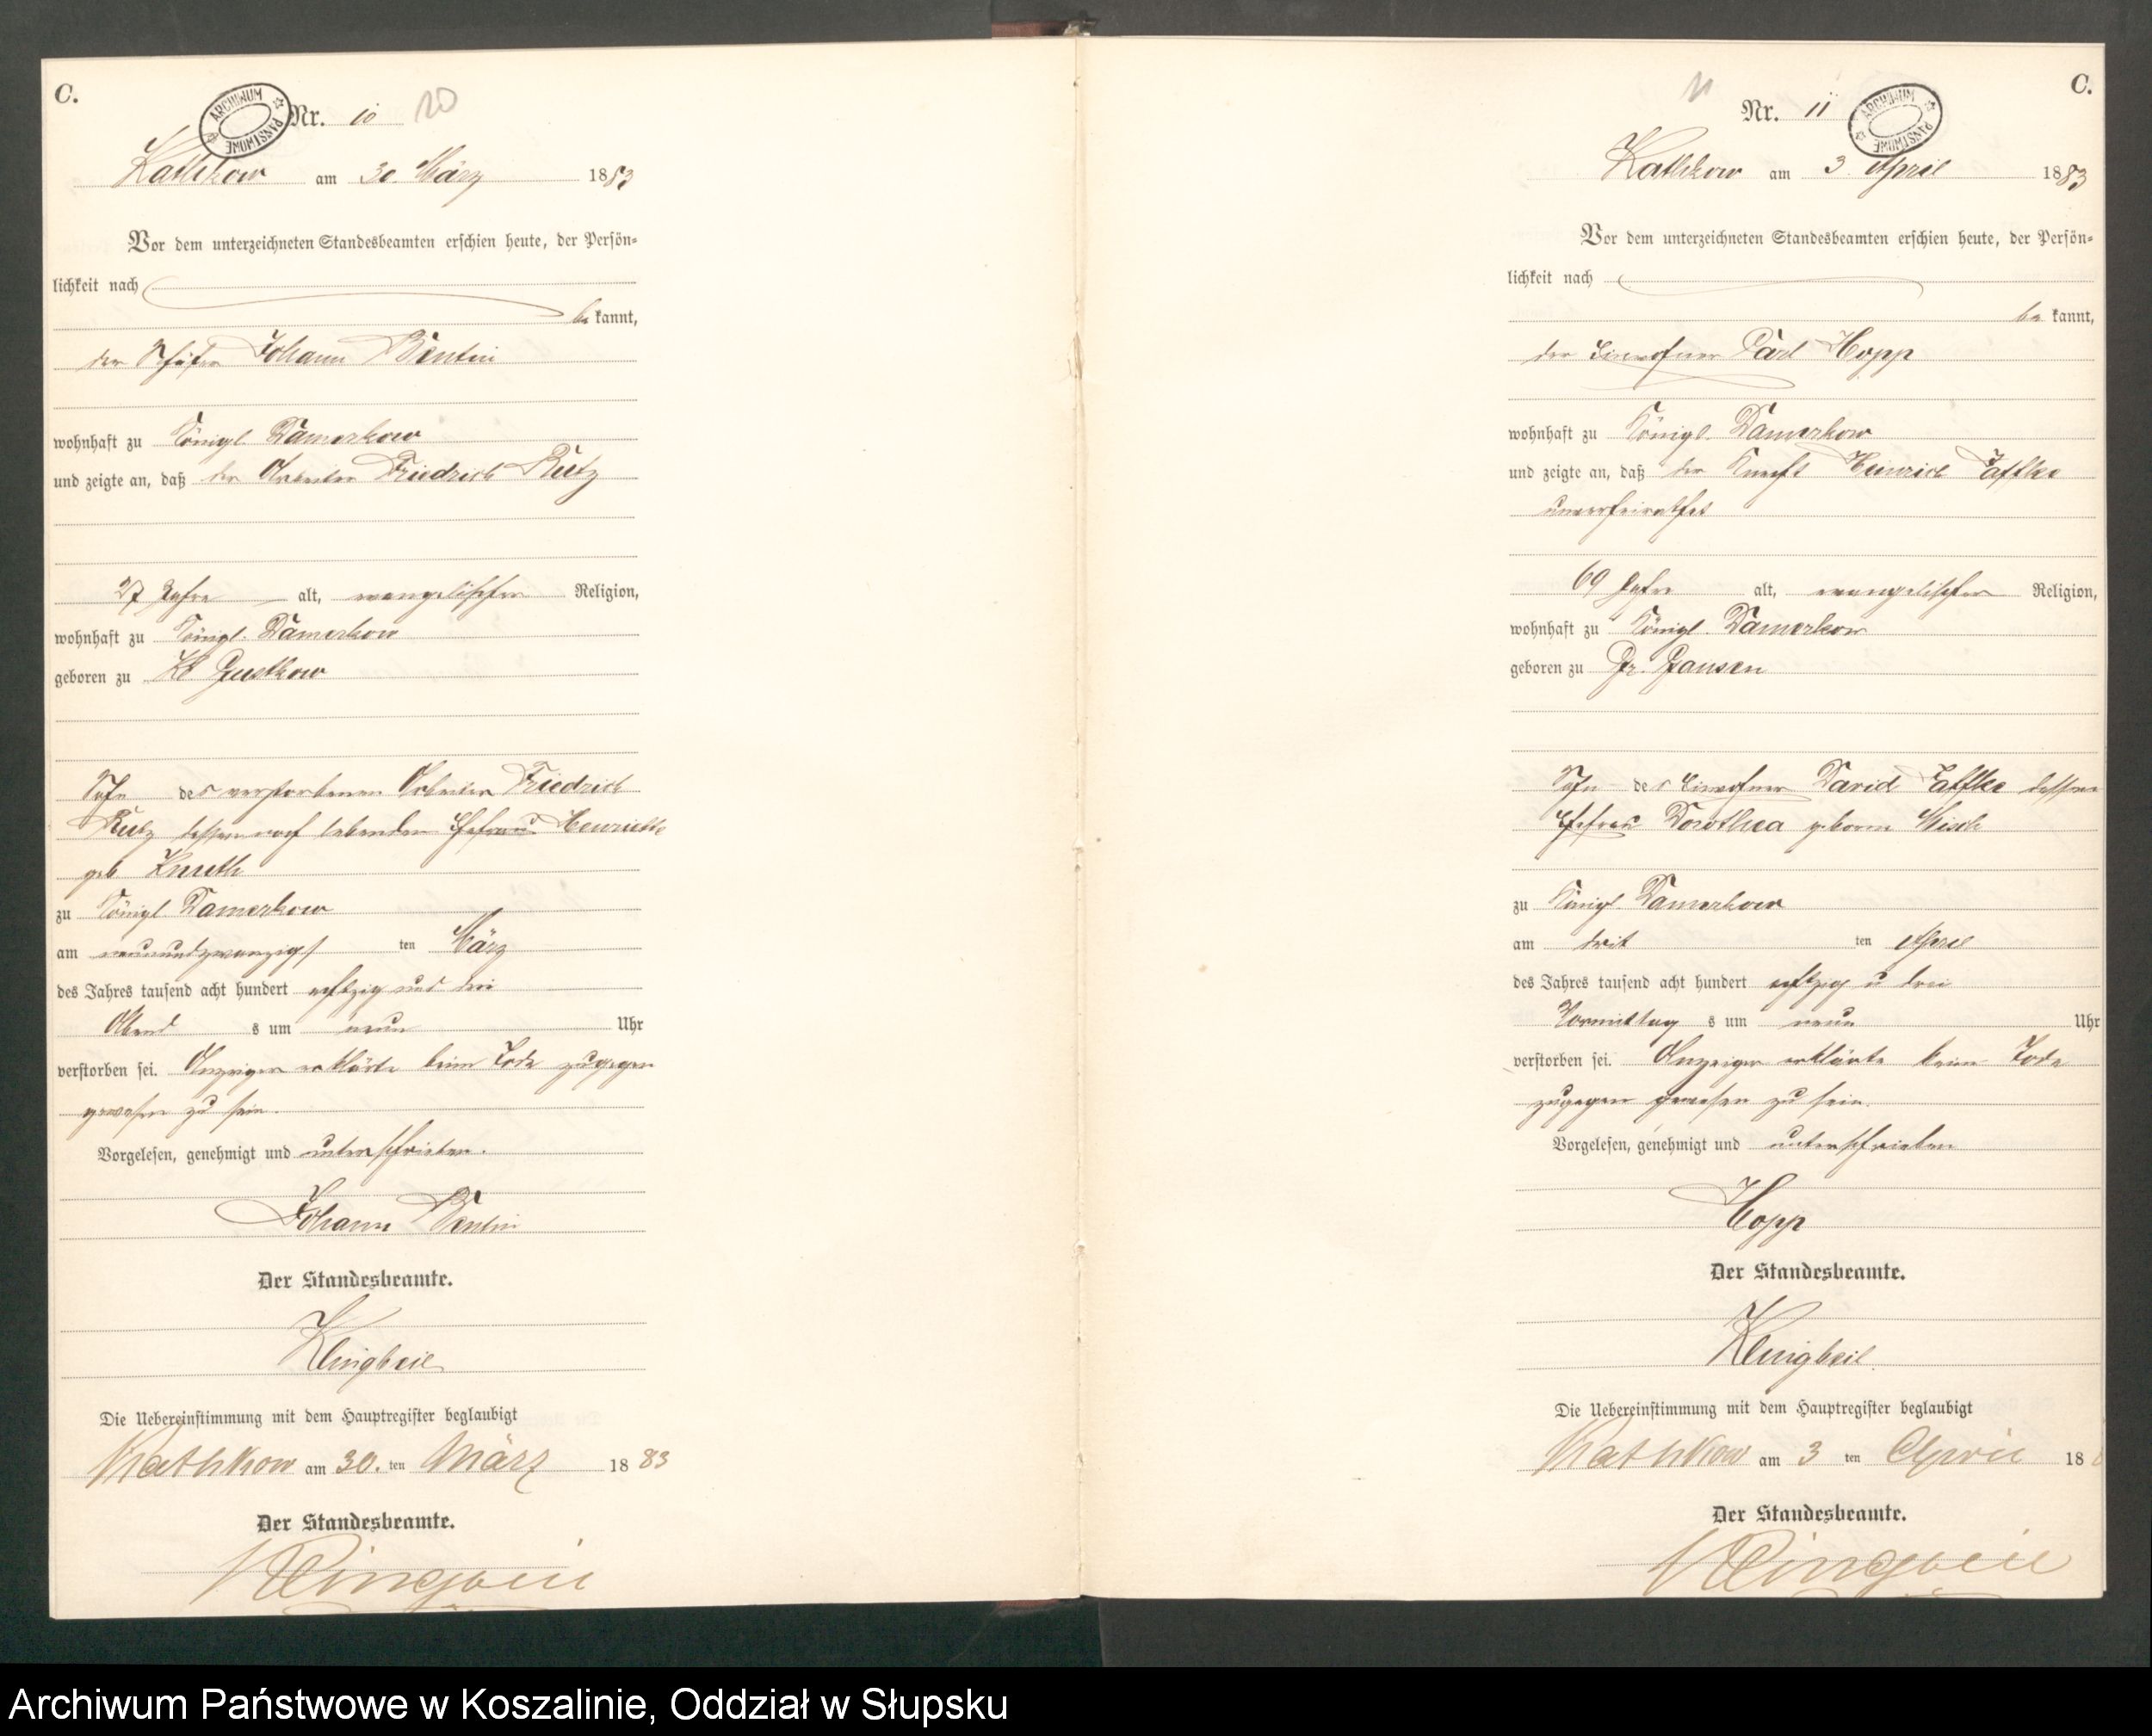 C.
ARCHIWUM PAŃSTWOWE
Nr. 10 10
Kathkow am 30. März 1883
Vor dem unterzeichneten Standesbeamten erschien heute, der Persön-
lichkeit nach
be kannt,
der Schäfer Johann Bentin
wohnhaft zu Königl Damerkow
und zeigte an, daß der Arbeiter Friedrich Rutz
27 Jahre alt, evangelischer Religion,
wohnhaft zu Königl. Damerkow
geboren zu Kl Gustkow
Sohn des verstorbenen Arbeiter Friedrich
Rutz dessen noch lebenden Ehefrau Henriette
geb Knuth
zu Königl Damerkow
am neunundzwanzigs ten März
des Jahres tausend acht hundert achtzig und drei
Abend s um neun Uhr
verstorben sei. Anzeiger erklärte beim Tode zugegen
gewesen zu sein.
Vorgelesen, genehmigt und unterschrieben.
Johann Bentin
Der Standesbeamte.
Klingbeil
Die Uebereinstimmung mit dem Hauptregister beglaubigt
Kathkow am 30. ten März 1883
Der Standesbeamte.
Klingbeil
C.
11
Nr. 11
ARCHIWUM PAŃSTWOWE
Kathkow am 3. April 1883
Vor dem unterzeichneten Standesbeamten erschien heute, der Persön-
lichkeit nach
be kannt,
der Einwohner Carl Hopp
wohnhaft zu Königl. Damerkow
und zeigte an, daß der Knecht Heinrich Jaffke
unverheirathet
69 Jahre alt, evangelischer Religion,
wohnhaft zu Königl. Damerkow
geboren zu Gr. Gansen
Sohn des Einwohner David Jaffke dessen
Ehefrau Dorothea geboren Misch
zu Königl. Damerkow
am drit ten April
des Jahres tausend acht hundert achtzig u drei
Vormittag s um neun Uhr
verstorben sei. Anzeiger erklärte beim Tode
zugegen gewesen zu sein.
Vorgelesen, genehmigt und unterschrieben
Hopp
Der Standesbeamte.
Klingbeil.
Die Uebereinstimmung mit dem Hauptregister beglaubigt
Kathkow am 3 ten April 18
Der Standesbeamte.
Klingbeil
Archiwum Państwowe w Koszalinie, Oddział w Słupsku